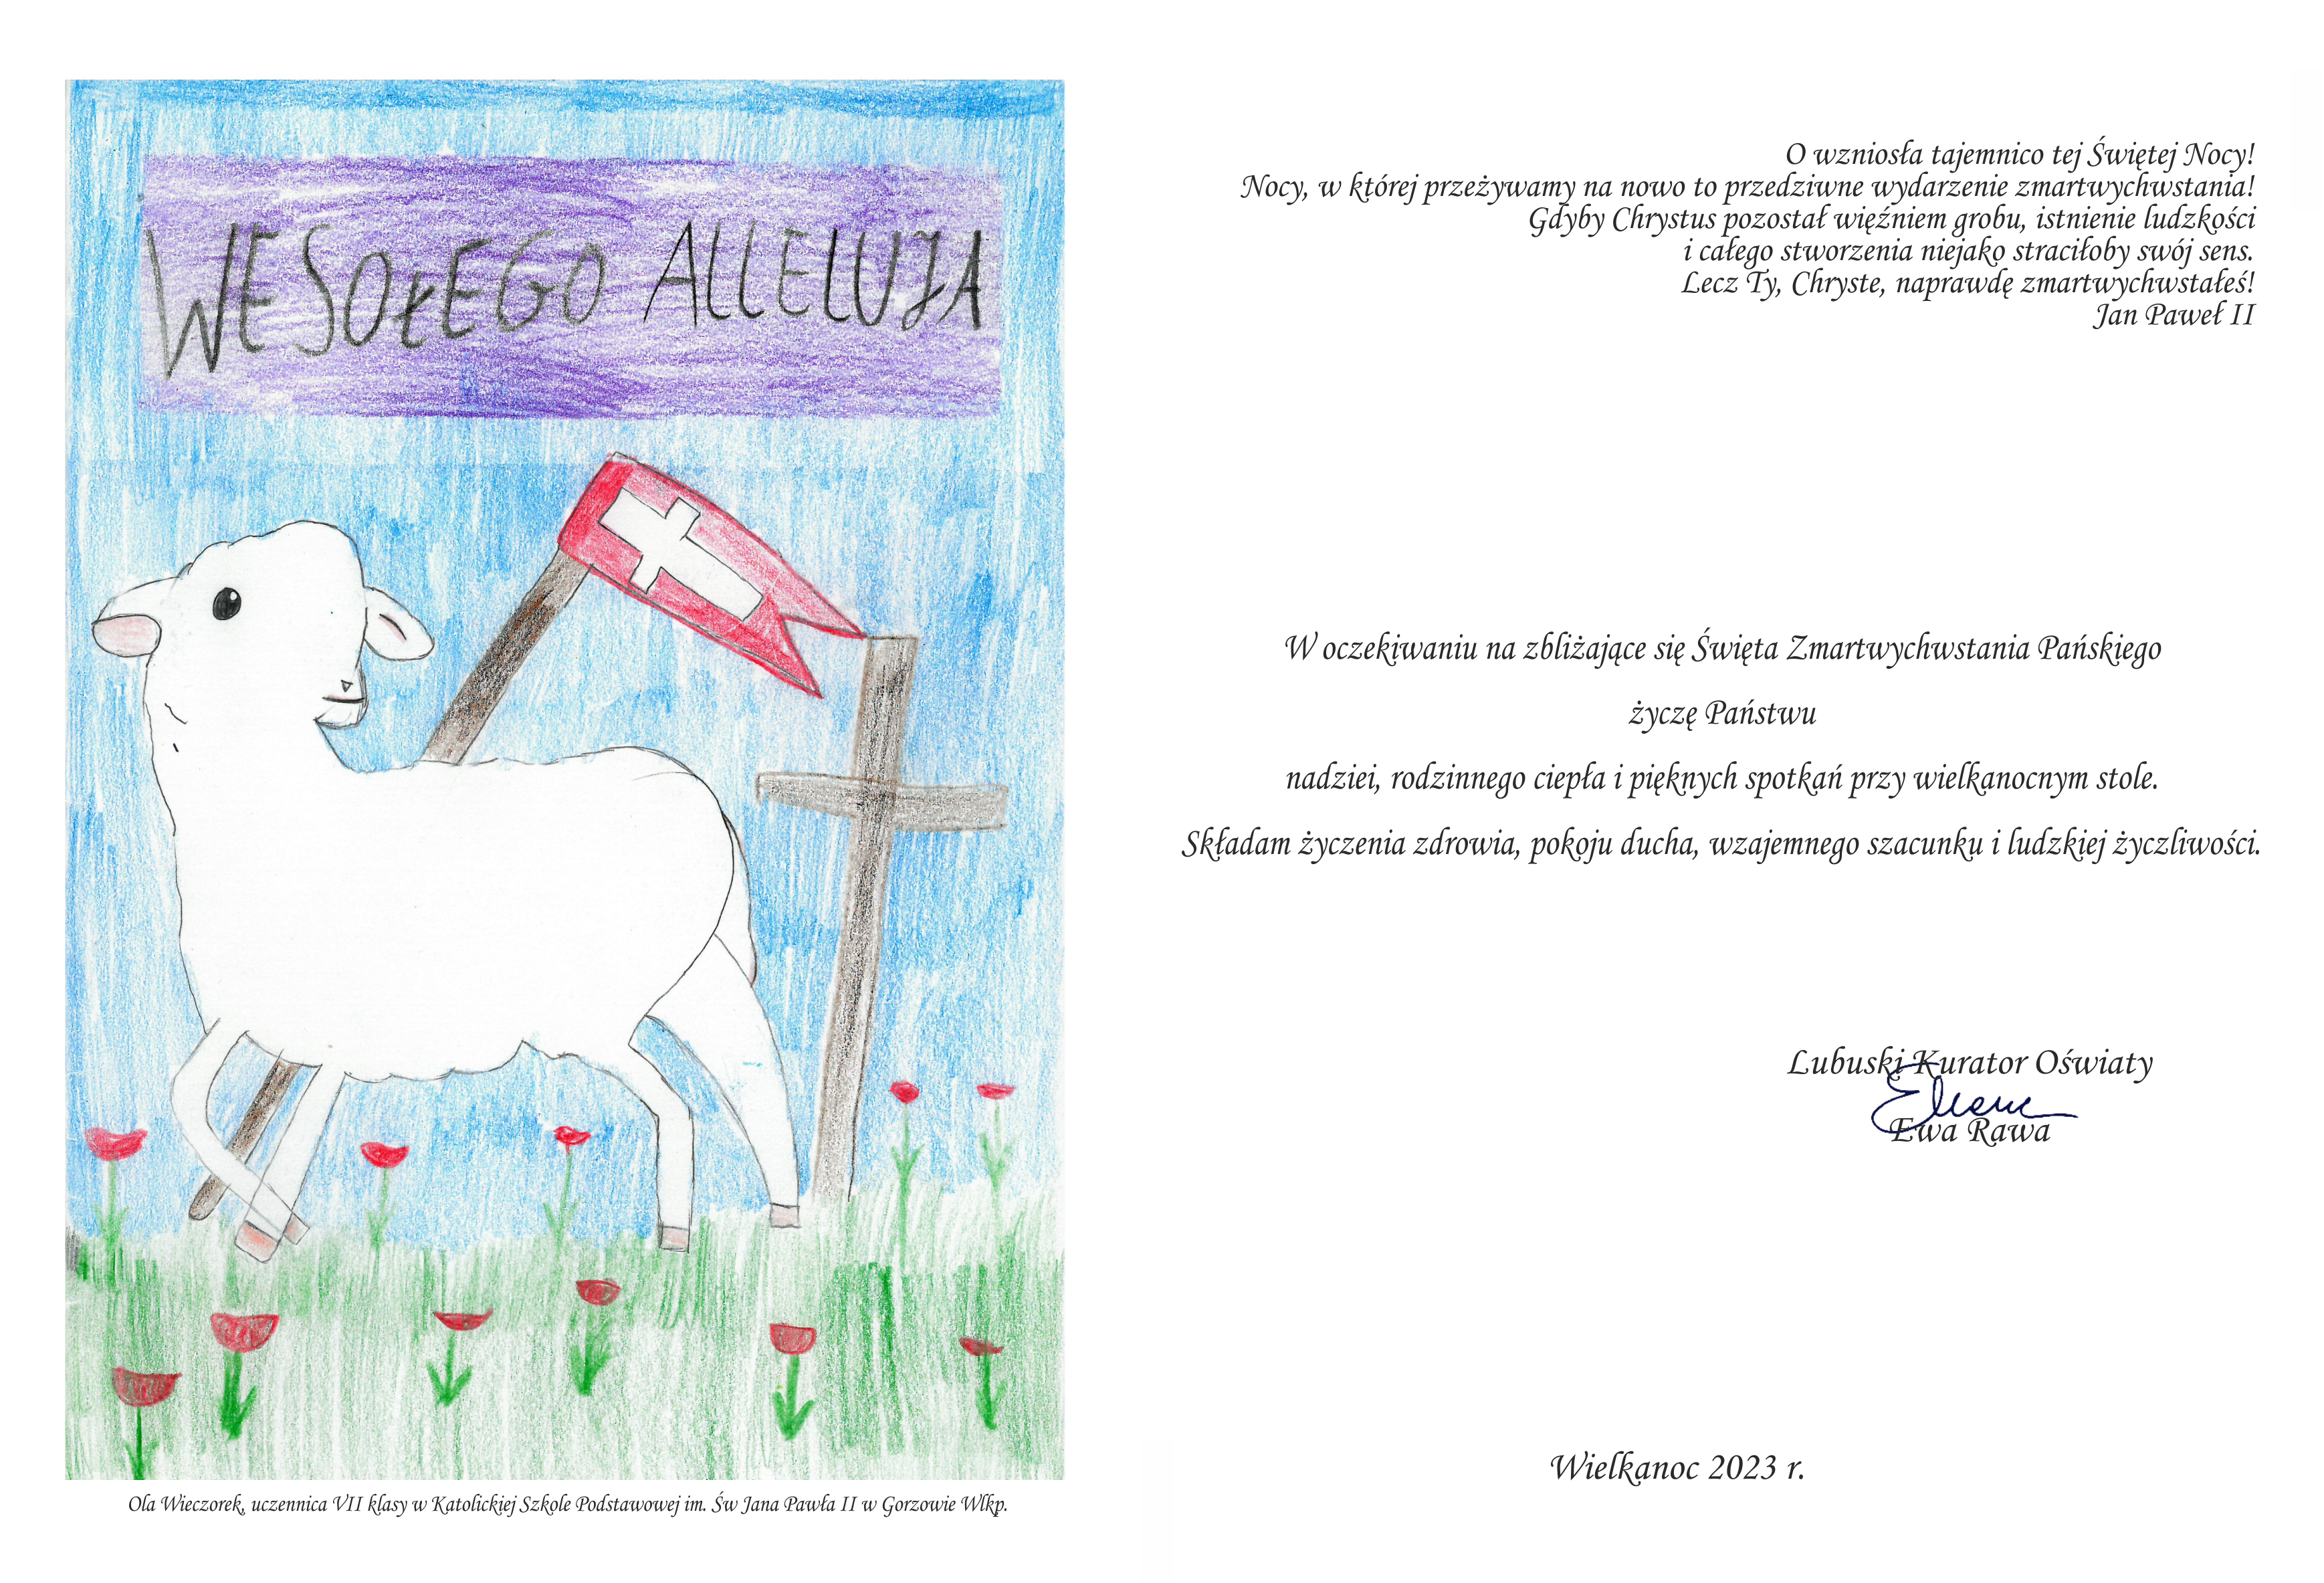 WESOŁEGO ALLELUJA
Ola Wieczorek, uczennica VII klasy w Katolickiej Szkole Podstawowej im. Św Jana Pawła II w Gorzowie Wlkp.
O wzniosła tajemnico tej Świętej Nocy!
Nocy, w której przeżywamy na nowo to przedziwne wydarzenie zmartwychwstania!
Gdyby Chrystus pozostał więźniem grobu, istnienie ludzkości
i całego stworzenia niejako straciłoby swój sens.
Lecz Ty, Chryste, naprawdę zmartwychwstałeś!
Jan Paweł II
W oczekiwaniu na zbliżające się Święta Zmartwychwstania Pańskiego
życzę Państwu
nadziei, rodzinnego ciepła i pięknych spotkań przy wielkanocnym stole.
Składam życzenia zdrowia, pokoju ducha, wzajemnego szacunku i ludzkiej życzliwości.
Lubuski Kurator Oświaty
Ewa Rawa
Wielkanoc 2023 r.